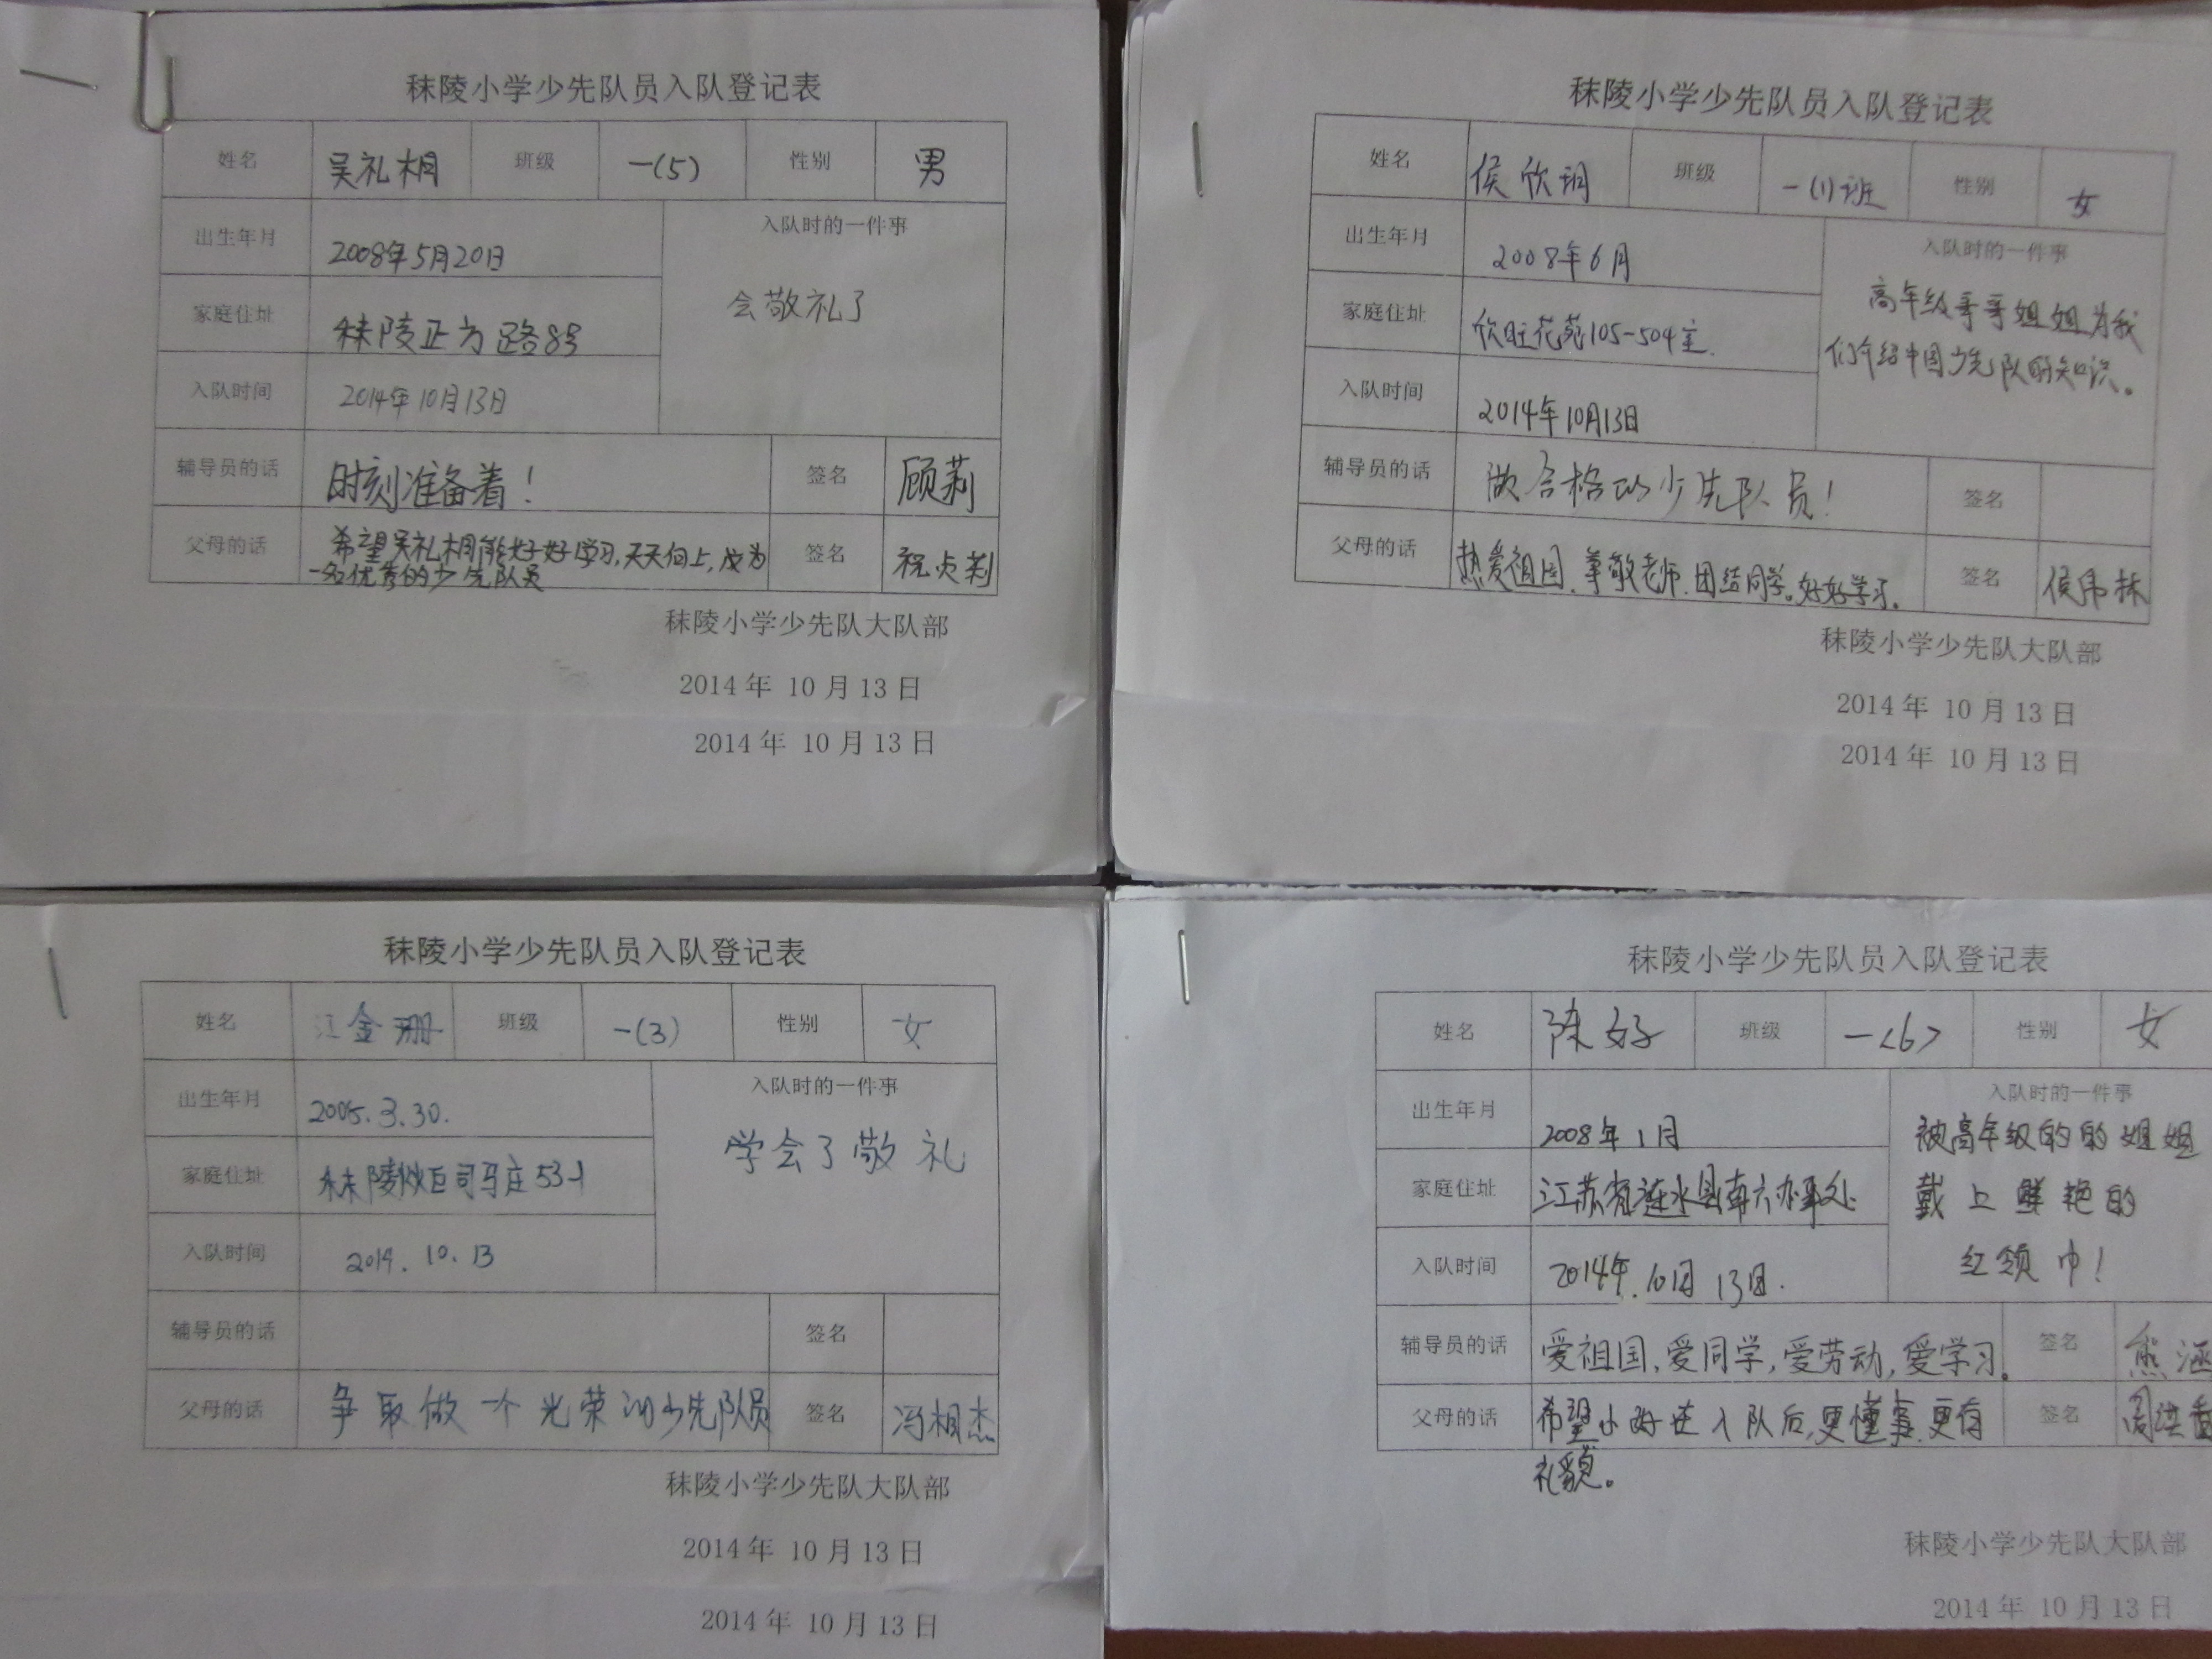 秣陵小学少先队员入队登记表
姓名 吴礼桐 班级 一(5) 性别 男
出生年月 2008年5月20日 入队时的一件事
会敬礼了
家庭住址 秣陵正方路8号
入队时间 2014年10月13日
辅导员的话 时刻准备着！ 签名 顾莉
父母的话 希望吴礼桐能好好学习,天天向上,成为 签名 祝贞莉
一名优秀的少先队员
秣陵小学少先队大队部
2014年 10月13日
2014年 10月13日
秣陵小学少先队员入队登记表
姓名 侯欣玥 班级 一(1)班 性别 女
出生年月 2008年6月 入队时的一件事
高年级哥哥姐姐为我
们介绍中国少先队的知识。
家庭住址 欣旺花苑105-504室.
入队时间 2014年10月13日
辅导员的话 做合格的少先队员！ 签名
父母的话 热爱祖国.尊敬老师.团结同学。好好学习. 签名 侯伟林
秣陵小学少先队大队部
2014年 10月13日
2014年 10月13日
秣陵小学少先队员入队登记表
姓名 江金珊 班级 一(3) 性别 女
出生年月 2005.3.30. 入队时的一件事
学会了敬礼
家庭住址 秣陵 司马庄53-1
入队时间 2014.10.13
辅导员的话 签名
父母的话 争取做一个光荣的少先队员 签名 冯相杰
秣陵小学少先队大队部
2014年 10月13日
2014年 10月13日
秣陵小学少先队员入队登记表
姓名 陈好 班级 一<6> 性别 女
出生年月 2008年1月 入队时的一件事
被高年级的的姐姐
戴上鲜艳的
红领巾！
家庭住址 江苏省涟水县南六办事处
入队时间 2014年.10月13日.
辅导员的话 爱祖国,爱同学,爱劳动,爱学习。 签名 熊涵
父母的话 希望小好在入队后,更懂事.更有 签名 周洪香
礼貌。
秣陵小学少先队大队部
2014年 10月13日